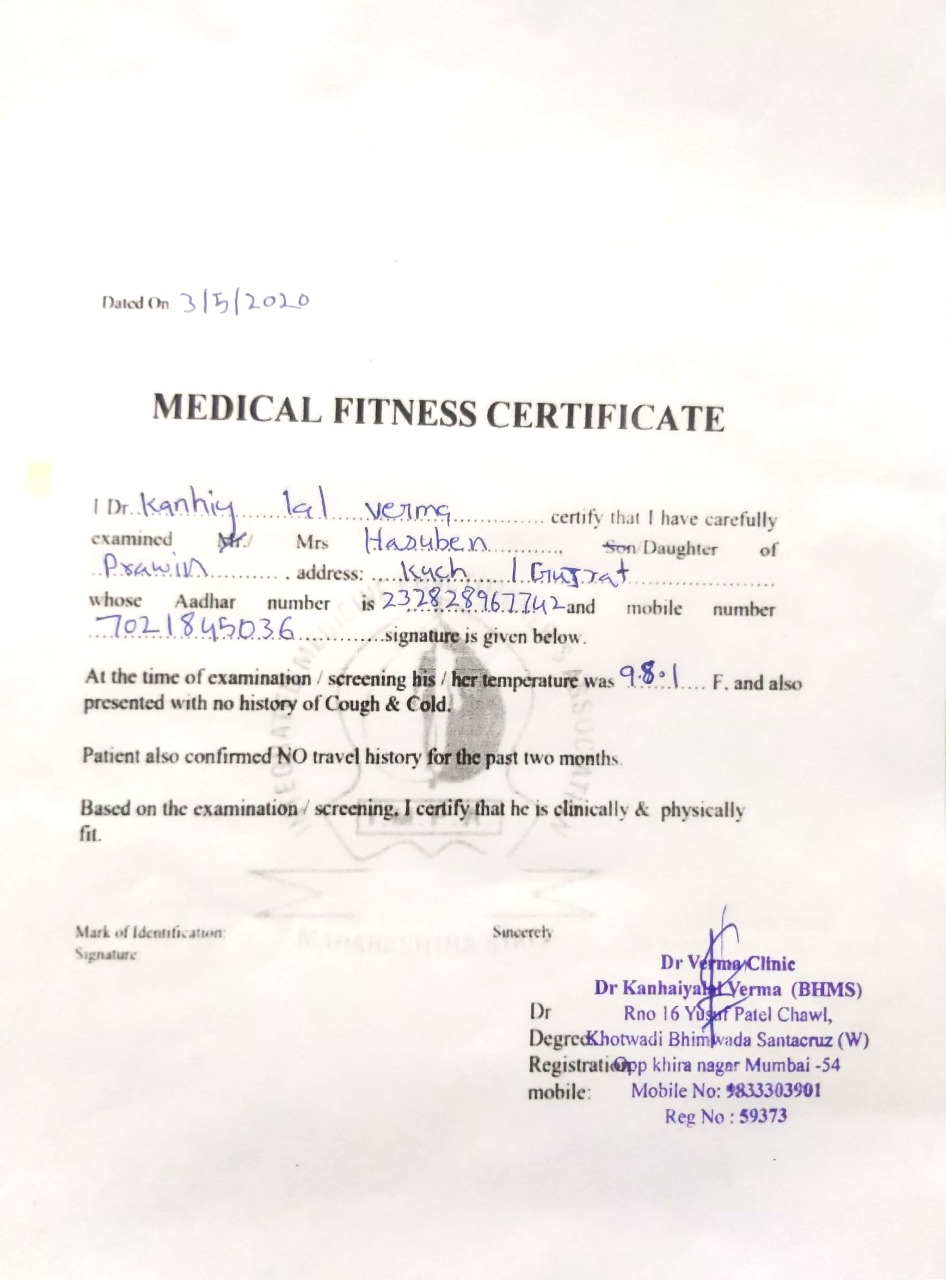 Dated On 3/5/2020
MEDICAL FITNESS CERTIFICATE
I Dr..Kanhiy lal verma.............. certify that I have carefully
examined Mr./ Mrs Hasuben.........., Son/Daughter of
..Prawin........... . address: ....Kuch / Gujrat..............................
whose Aadhar number is 232828967742 and mobile number
7021845036...............signature is given below.
At the time of examination / screening his / her temperature was 98.1.... F. and also
presented with no history of Cough & Cold.
Patient also confirmed NO travel history for the past two months.
Based on the examination / screening, I certify that he is clinically & physically
fit.
Mark of Identification:
Signature
Sincerely
Dr Verma Clinic
Dr Kanhaiyalal Verma (BHMS)
Dr Rno 16 Yusuf Patel Chawl,
Degree Khotwadi Bhimwada Santacruz (W)
Registration Opp khira nagar Mumbai -54
mobile: Mobile No: 9833303901
Reg No : 59373